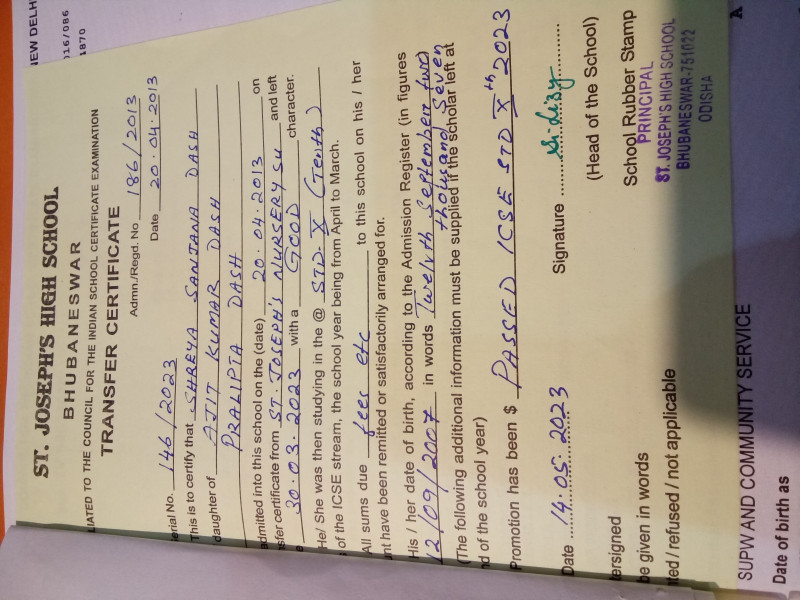 ST. JOSEPH'S HIGH SCHOOL
BHUBANESWAR
LIATED TO THE COUNCIL FOR THE INDIAN SCHOOL CERTIFICATE EXAMINATION
TRANSFER CERTIFICATE
Admn./Regd. No. 186/2013
erial No. 146/2023
Date 20.04.2013
This is to certify that SHREYA SANJANA DASH
daughter of AJIT KUMAR DASH
PRALIPTA DASH
admitted into this school on the (date) 20.04.2013 on
sfer certificate from ST. JOSEPH'S NURSERY SU and left
e 30.03.2023 with a GOOD character.
He/ She was then studying in the @ STD. X (Tenth)
) of the ICSE stream, the school year being from April to March.
All sums due fees etc to this school on his / her
nt have been remitted or satisfactorily arranged for.
His / her date of birth, according to the Admission Register (in figures
12/09/2007 in words Twelvth September two
thousand Seven
(The following additional information must be supplied if the scholar left at
nd of the school year)
Promotion has been $ PASSED ICSE STD Xth 2023
Date 14.05.2023
Signature
(Head of the School)
School Rubber Stamp
PRINCIPAL
ST. JOSEPH'S HIGH SCHOOL
BHUBANESWAR-751022
ODISHA
ersigned
be given in words
ted / refused / not applicable
SUPW AND COMMUNITY SERVICE
A
Date of birth as
EW DELH
016/086
1870